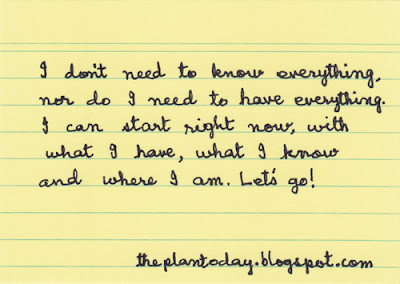 I don't need to know everything,
nor do I need to have everything.
I can start right now, with
what I have, what I know
and where I am. Let's go!
theplantoday.blogspot.com